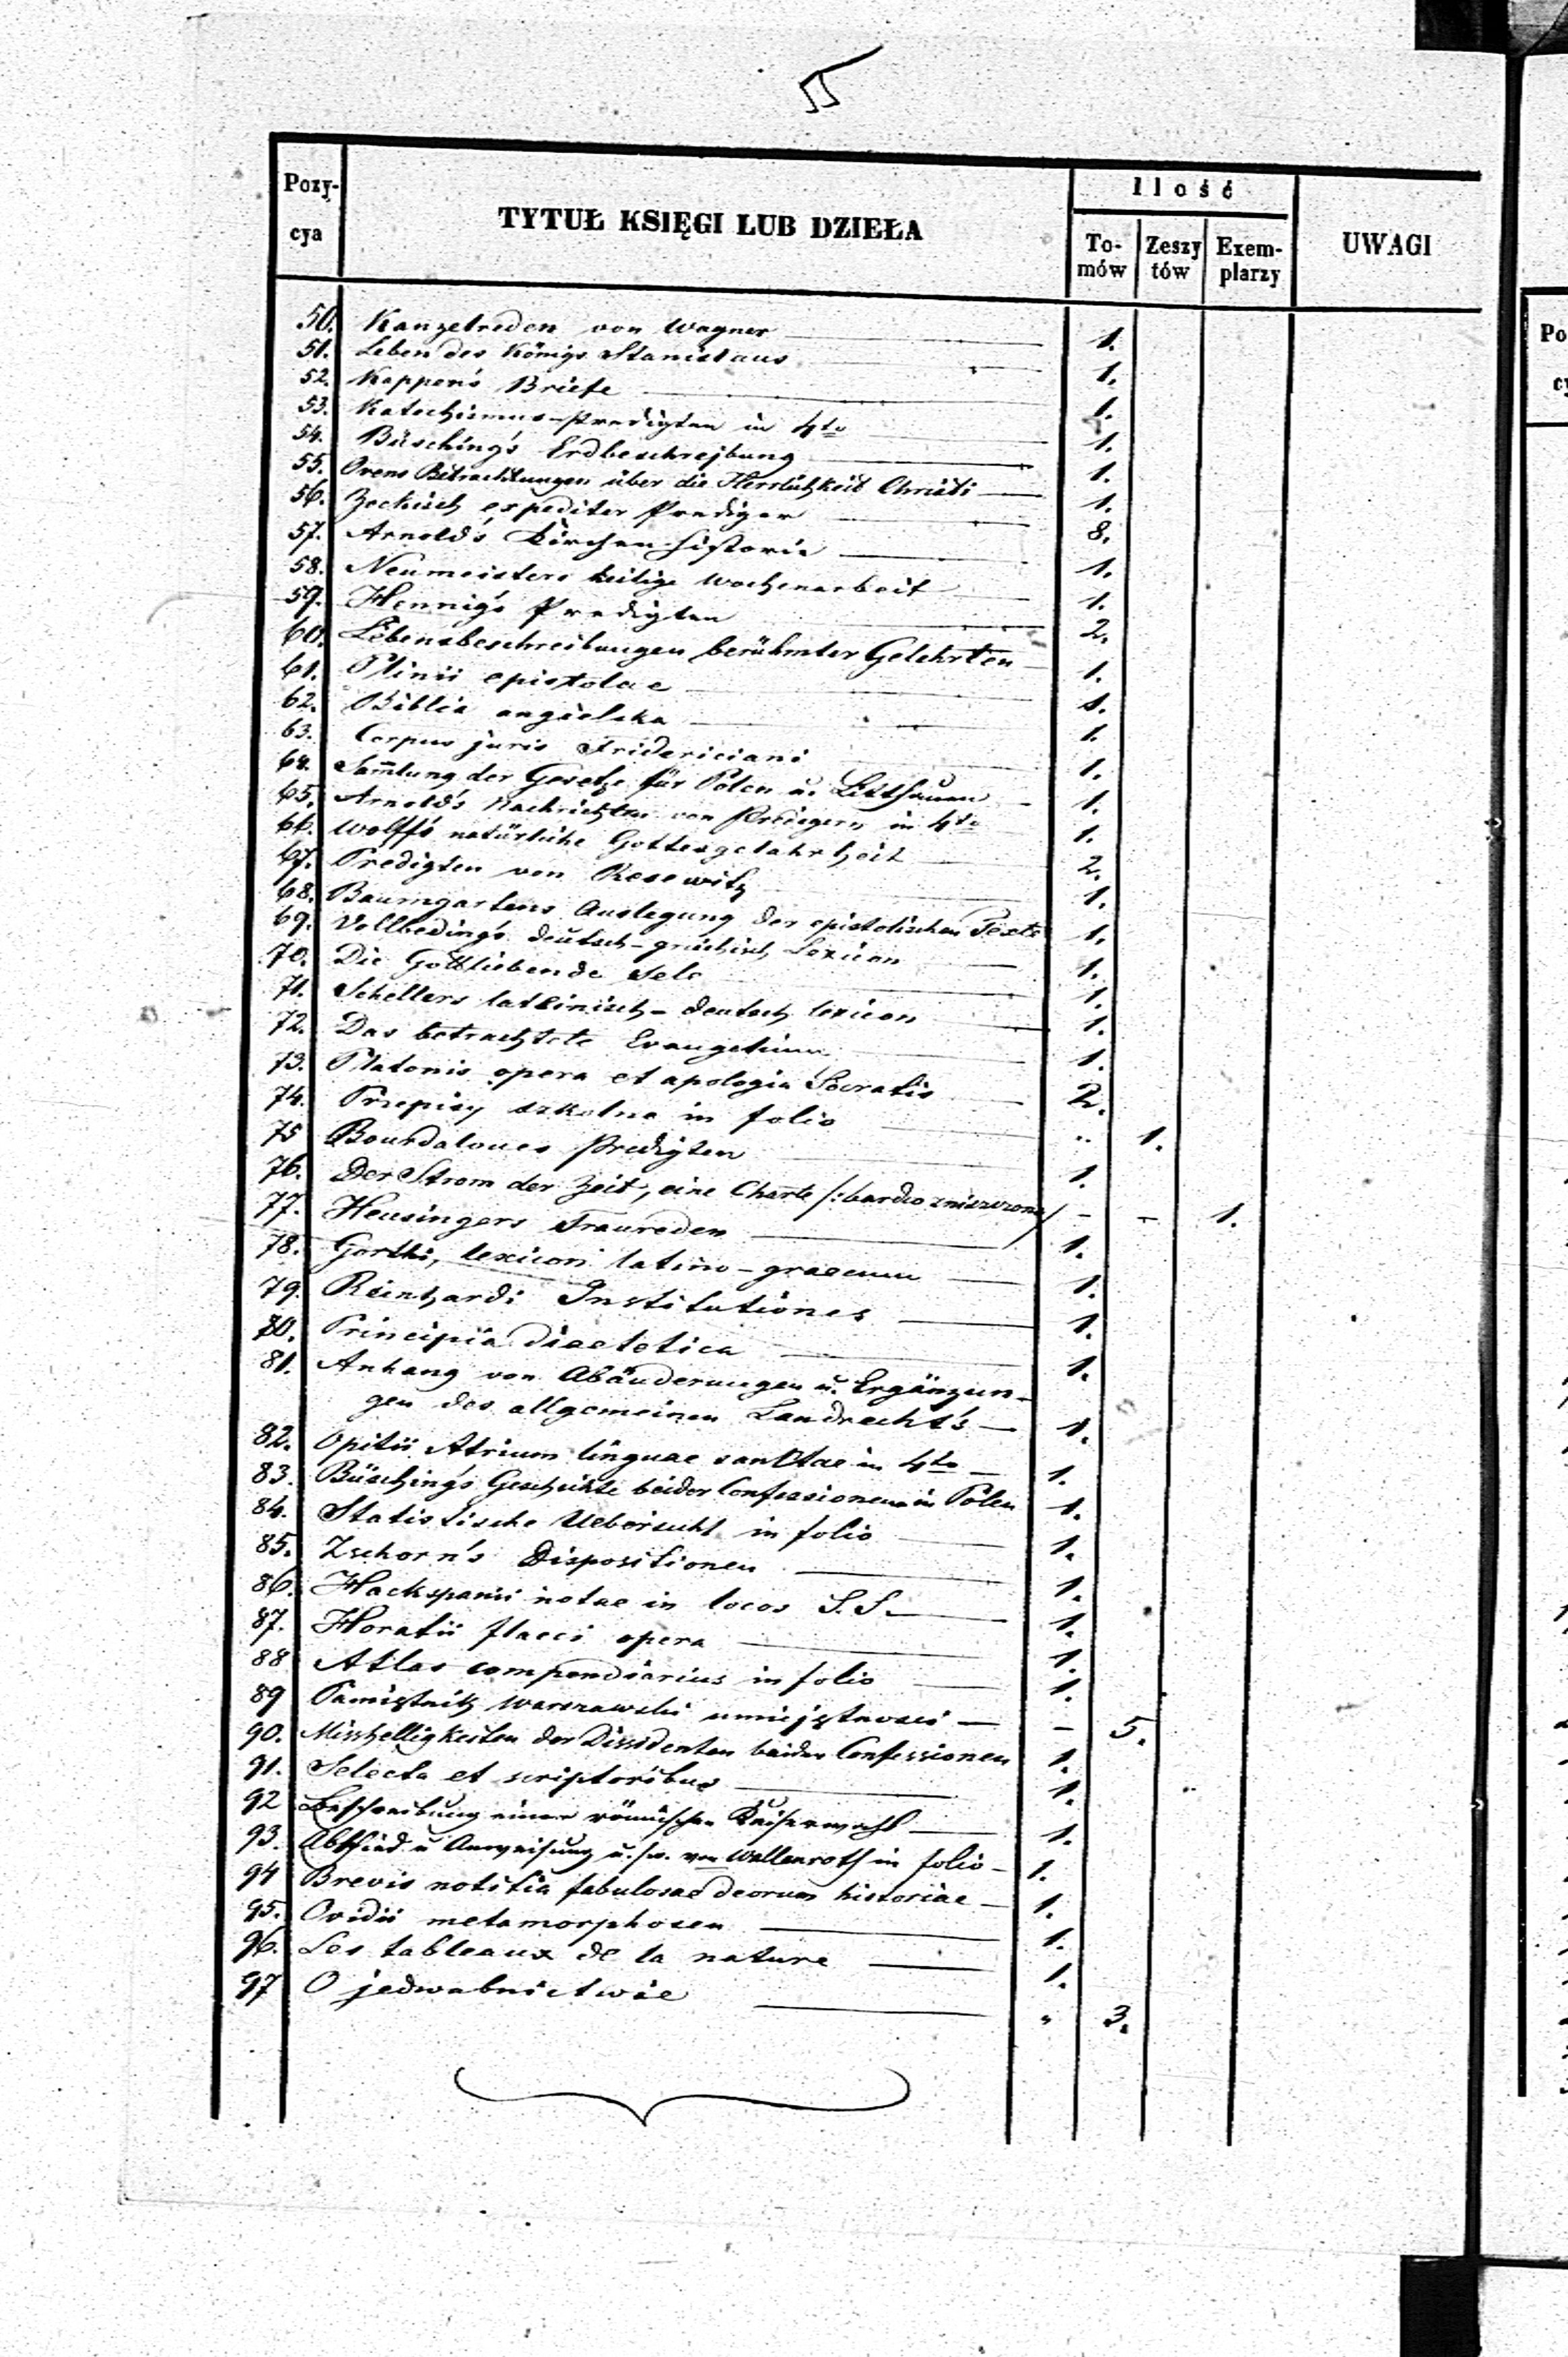 Pozycya TYTUŁ KSIĘGI LUB DZIEŁA Ilość Tomów Zeszytów Exemplarzy UWAGI
50. Kanzelreden von Wagner 1.
51. Leben des Königs Stanislaus 1.
52. Kappen's Briefe 1.
53. Katechismus-Predigten in 4to 1.
54. Büsching's Erdbeschrejbung 1.
55. Ovens Betrachtungen über die Herrlichkeit Christi 1.
56. Zechisch expediter Prediger 8.
57. Arnold's Kirchen-Historie 1.
58. Neumeisters heilige Wochenarbeit 1.
59. Hennig's Predigten 2.
60. Lebensbeschreibungen berühmter Gelehrten 1.
61. Plinii epistolae 1.
62. Biblia angielska 1.
63. Corpus juris Fridericiani 1.
64. Sam̄lung der Gesetze für Polen u. Litthauen 1.
65. Arnold's Nachrichten von Predigern in 4to 1.
66. Wolff's natürliche Gottesgelahrtheit 2.
67. Predigten von Resewitz 1.
68. Baumgartens Auslegung der epistolischen Texte 1.
69. Vollbeding's deutsch-griechisch Lexicon 1.
70. Die Gottliebende Sele 1.
71. Schellers lateinisch-deutsch lexicon 1.
72. Das betrachtete Evangelium 1.
73. Platonis opera et apologia Socratis 2.
74. Przepisy szkolne in folio .. 1.
75 Bourdaloues Predigten 1.
76. Der Strom der Zeit, eine Charte /: bardzo zniszczona/ - - 1.
77. Heusingers Traureden 1.
78. Gorthi, lexicon latino-graecum 1.
79. Reinhardi Institutiones 1.
80. Principia diaetetica 1.
81. Anhang von Abänderungen u. Ergänzun-
gen des allgemeinen Landrecht's 1.
82. Opitii Atrium linguae sanctae in 4to 1.
83. Büsching's Geschichte beider Confessionen in Polen 1.
84. Statistische Uebersicht in folio 1.
85. Zschorn's Dispositionen 1.
86. Hackspanii notae in locos S. S. 1.
87. Horatii flacci opera 1.
88 Atlas compendiarius in folio 1.
89 Pamiętnik warszawski umiejętności - 5.
90. Misshelligkeiten der Dissidenten beider Confessionen 1.
91. Selecta et scriptoribus 1.
92 Beschreibung einer römischen Kaiserwahl 1.
93. Abschied u Anweisung u.s.w. von Wallenroth in folio 1.
94 Brevis notitia fabulosae deorum historiae 1.
95. Ovidii metamorphosen 1.
96. Les tableaux de la nature 1.
97 O jedwabnictwie " 3.
Po